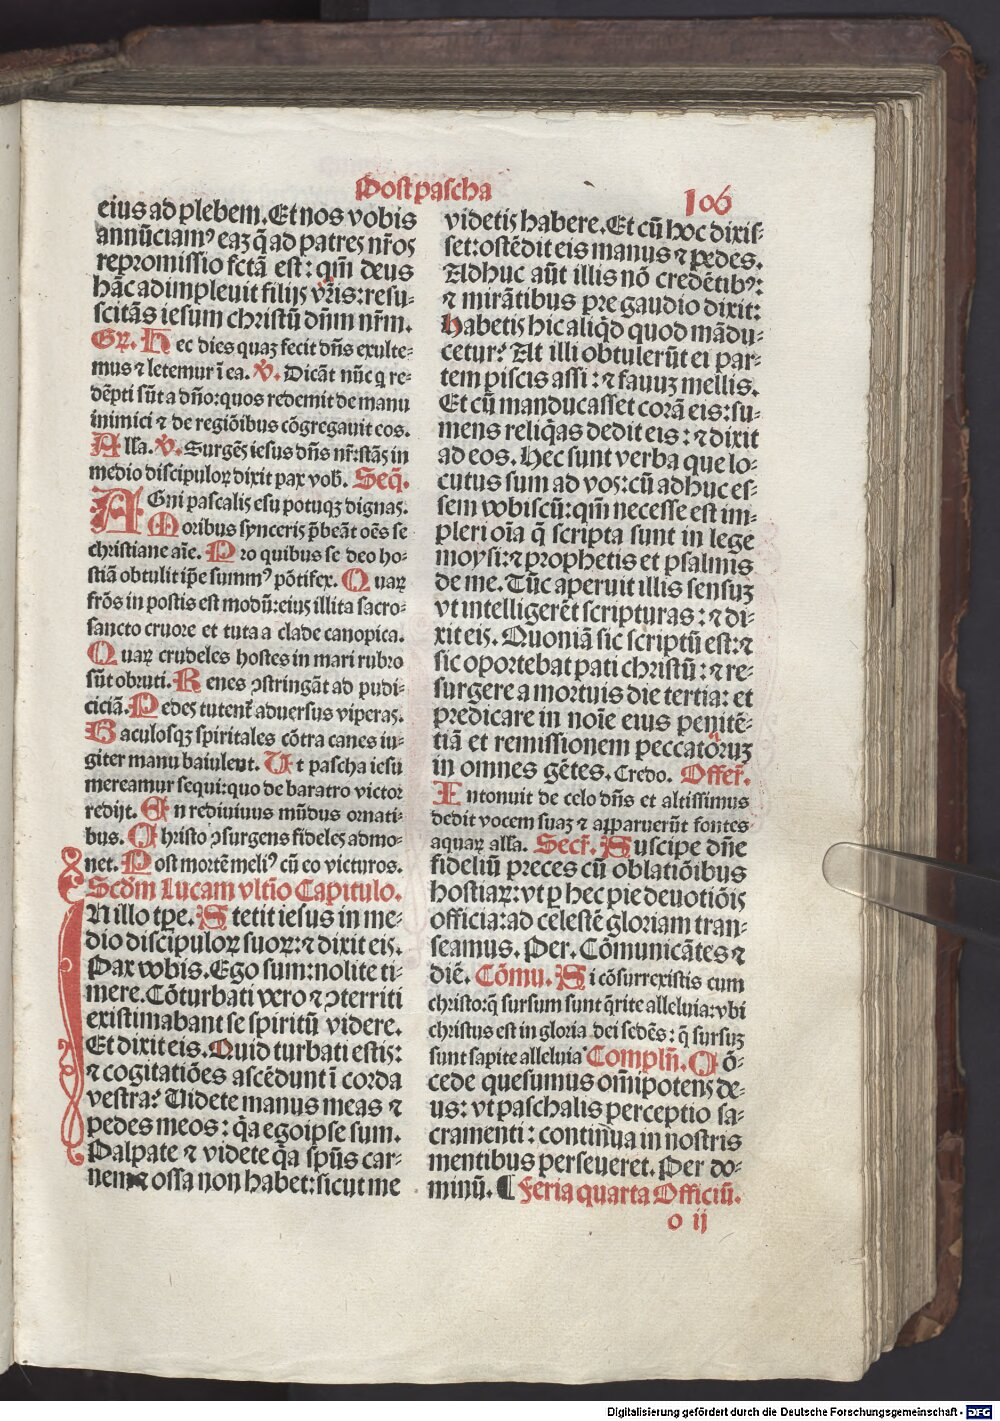 Post pascha
106
eius ad plebem. Et nos vobis
annūciamꝰ eaꝫ q̄ ad patres nr̄os
repromissio fctā est: qm̄ deus
hāc adimpleuit filijs vr̄is: resu-
scitās iesum christū dn̄m nr̄m.
Gꝛ. Hec dies quaꝫ fecit dn̄s exulte-
mus ⁊ letemur ī ea. ℣. Dicāt nūc q re-
dēpti sūt a dn̄o: quos redemit de manu
inimici ⁊ de regiōibus cōgregauit eos.
Alla. ℣. Surgēs iesus dn̄s nr̄: stās in
medio discipuloꝝ dixit pax vob̄. Seq̄.
AGni pascalis esu potuqꝫ dignas.
Moribus synceris p̄beāt oēs se
christiane aīe. Pro quibus se deo ho-
stiā obtulit ip̄e summꝰ pōtifex. Quaꝝ
frōs in postis est modū: eius illita sacro-
sancto cruore et tuta a clade canopica.
Quaꝝ crudeles hostes in mari rubro
sūt obruti. Renes ꝯstringāt ad pudi-
ciciā. Pedes tutent̄ aduersus viperas.
Baculosqꝫ spiritales cōtra canes iu-
giter manu baiulent. Ut pascha iesu
mereamur sequi: quo de baratro victor
redijt. En rediuiuus mūdus ornati-
bus. Christo ꝯsurgens fideles admo-
net. Post mortē meliꝰ cū eo victuros.
Scd̄m Lucam vltīo Capitulo.
IN illo tꝑe. Stetit iesus in me-
dio discipuloꝝ suoꝝ: ⁊ dixit eis.
Pax vobis. Ego sum: nolite ti-
mere. Cōturbati vero ⁊ ꝯterriti
existimabant se spiritū videre.
Et dixit eis. Quid turbati estis:
⁊ cogitatiōes ascēdunt ī corda
vestra? Videte manus meas ⁊
pedes meos: q̄a ego ipse sum.
Palpate ⁊ videte q̄a sp̄us car-
nem ⁊ ossa non habet: sicut me
videtis habere. Et cū hoc dixis-
set: ostēdit eis manus ⁊ pedes.
Adhuc aūt illis nō credētibꝰ:
⁊ mirātibus pre gaudio dixit:
Habetis hic aliqd̄ quod mādu-
cetur? At illi obtulerūt ei par-
tem piscis assi: ⁊ fauuꝫ mellis.
Et cū manducasset corā eis: su-
mens reliq̄as dedit eis: ⁊ dixit
ad eos. Hec sunt verba que lo-
cutus sum ad vos: cū adhuc es-
sem vobiscū: qm̄ necesse est im-
pleri oīa q̄ scripta sunt in lege
moysi: ⁊ prophetis et psalmis
de me. Tūc aperuit illis sensuꝫ
vt intelligerēt scripturas: ⁊ di-
xit eis. Quoniā sic scriptū est: ⁊
sic oportebat pati christū: ⁊ re-
surgere a mortuis die tertia: et
predicare in noīe eius penitē-
tiā et remissionem peccatoruꝫ
in omnes gētes. Credo. Offer̄.
Intonuit de celo dn̄s et altissimus
dedit vocem suaꝫ ⁊ apparuerūt fontes
aquaꝝ alla. Secr̄. Suscipe dn̄e
fideliū preces cū oblatiōibus
hostiaꝝ: vt ꝑ hec pie deuotiōis
officia: ad celestē gloriam tran-
seamus. Per. Cōmunicātes ⁊
diē. Cōmu. Si cōsurrexistis cum
christo: q̄ sursum sunt q̄rite alleluia: vbi
christus est in gloria dei sedēs: q̄ sursuꝫ
sunt sapite alleluia Compln̄. Cō-
cede quesumus om̄ipotens de-
us: vt paschalis perceptio sa-
cramenti: continua in nostris
mentibus perseueret. Per do-
minū. ¶ Feria quarta Officiū.
o ij
Digitalisierung gefördert durch die Deutsche Forschungsgemeinschaft - DFG